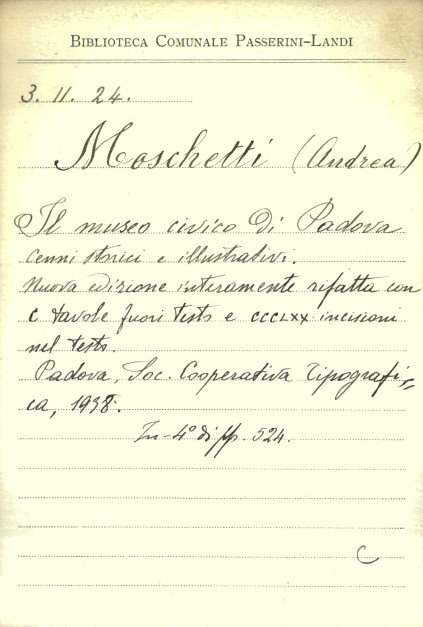 BIBLIOTECA COMUNALE PASSERINI-LANDI
3. 11. 24.
Moschetti (Andrea)
Il museo civico di Padova
Cenni storici e illustrativi.
Nuova edizione interamente rifatta con
C tavole fuori testo e CCCLXX incisioni
nel testo.
Padova, Soc. Cooperativa Tipografi=
ca, 1938.
In-4° di pp. 524.
C